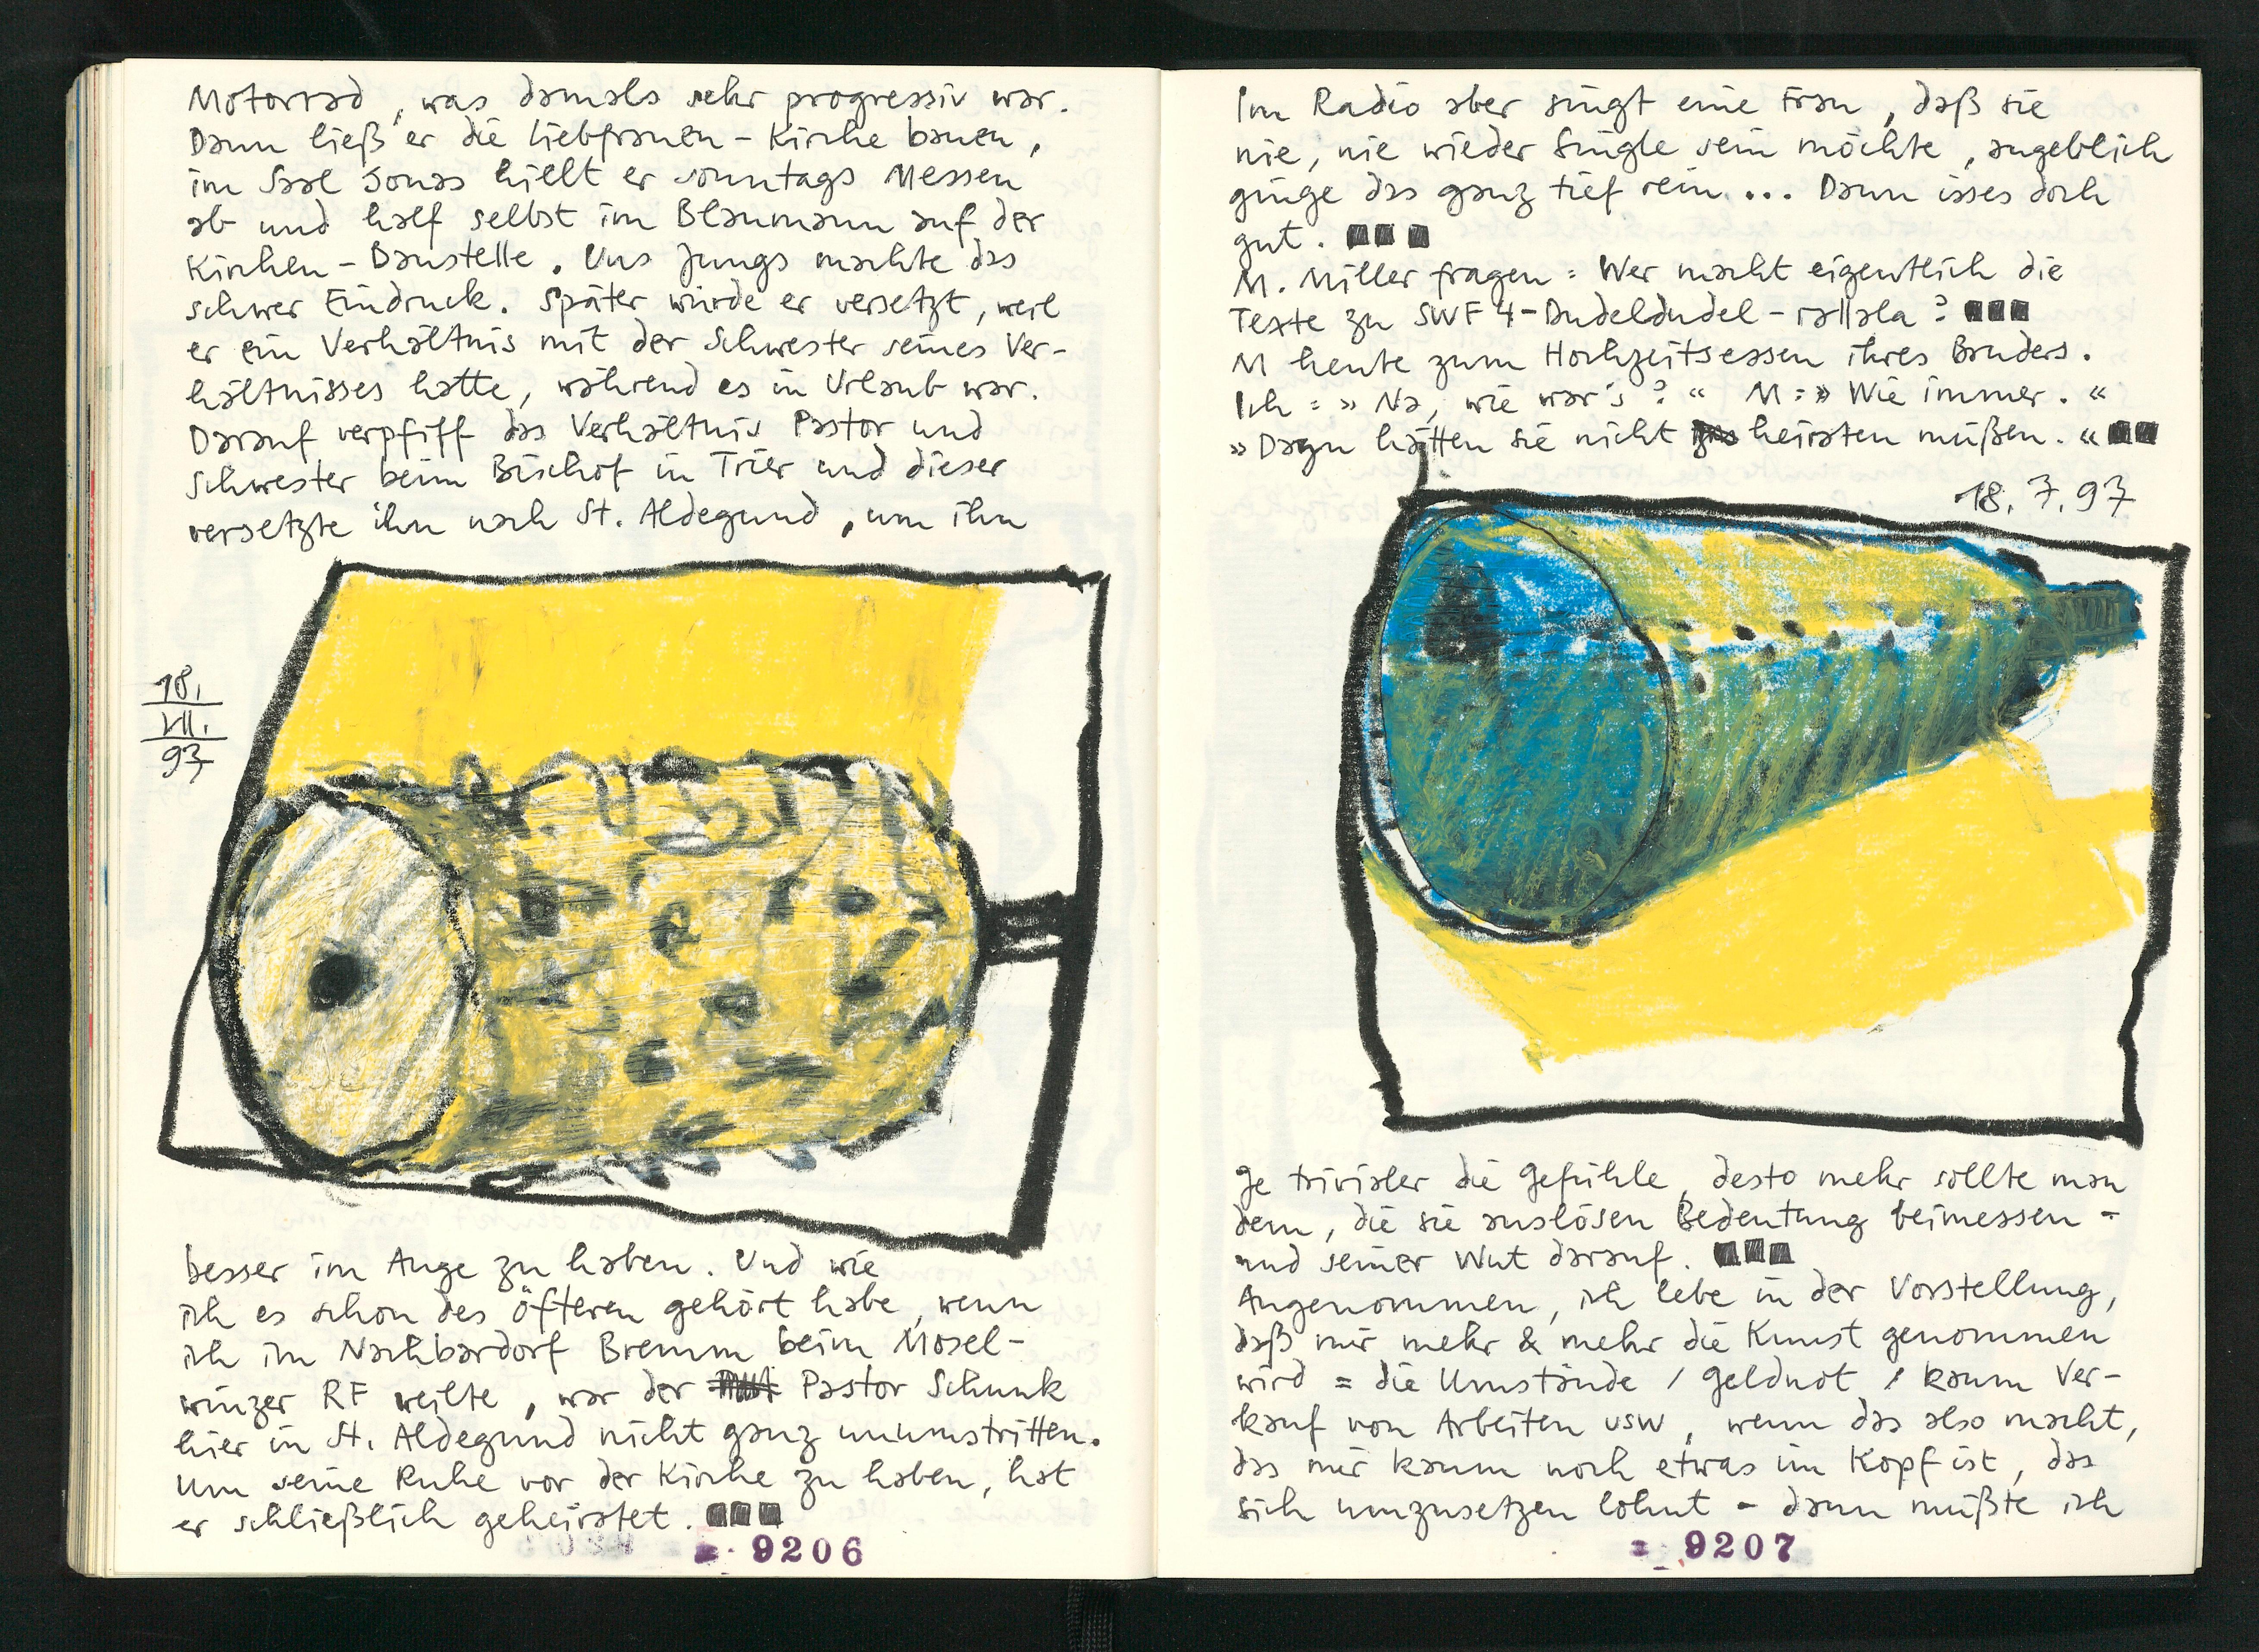 Motorrad, was damals sehr progressiv war.
Dann ließ er die Liebfrauen-Kirche bauen,
im Saal Jonas hiellt er sonntags Messen
ab und half selbst im Blaumann auf der
Kirchen-Baustelle. Uns Jungs machte das
schwer Eindruck. Später wurde er versetzt, weil
er ein Verhältnis mit der Schwester seines Ver-
hältnisses hatte, während es in Urlaub war.
Darauf verpfiff das Verhältnis Pastor und
Schwester beim Bischof in Trier und dieser
versetzte ihn nach St. Aldegund, um ihn
18.
VII.
97
besser im Auge zu haben. Und wie
ich es schon des öfteren gehört habe, wenn
ich im Nachbardorf Bremm beim Mosel-
winzer RF weilte, war der Pastor Schunk
hier in St. Aldegund nicht ganz unumstritten.
Um seine Ruhe vor der Kirche zu haben, hat
er schließlich geheiratet.
9206
Im Radio aber singt eine Frau, daß sie
nie, nie wieder Single sein möchte, angeblich
ginge das ganz tief rein... Dann isses doch
gut.
M. Miller fragen: Wer macht eigentlich die
Texte zu SWF 4-Dudeldudel-rallala?
M heute zum Hochzeitsessen ihres Bruders.
Ich: »Na, wie war's?« M: »Wie immer.«
»Dazu hätten sie nicht heiraten müßen.«
18.7.97
Je trivialer die Gefühle, desto mehr sollte man
dem, die sie auslösen Bedeutung beimessen -
und seiner Wut darauf.
Angenommen, ich lebe in der Vorstellung,
daß mir mehr & mehr die Kunst genommen
wird = die Umstände / Geldnot / kaum Ver-
kauf von Arbeiten usw, wenn das also macht,
das mir kaum noch etwas im Kopf ist, das
sich umzusetzen lohnt - dann müßte ich
9207